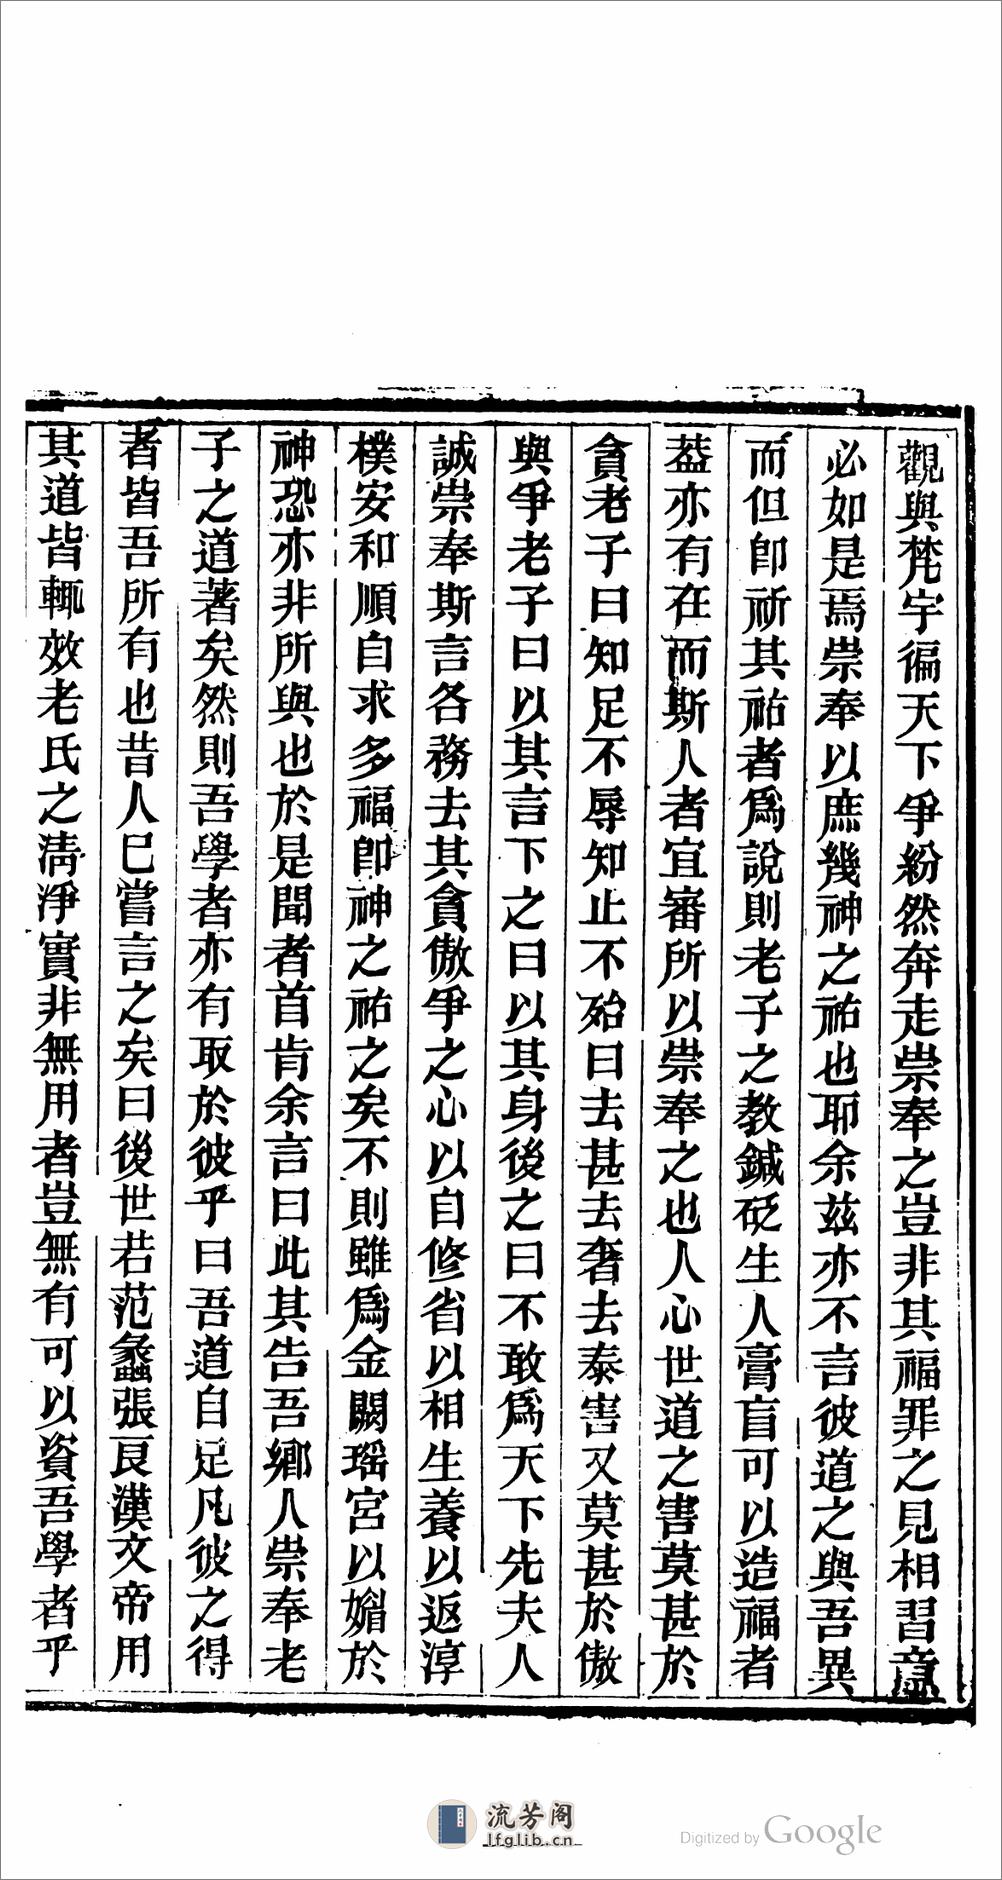 觀與梵宇徧天下爭紛然奔走崇奉之豈非其福罪之見相習意
必如是焉崇奉以庶幾神之祐也耶余兹亦不言彼道之與吾異
而但卽祈其祐者爲說則老子之教鍼砭生人膏盲可以造福者
葢亦有在而斯人者宜審所以崇奉之也人心世道之害莫甚於
貪老子曰知足不辱知止不殆曰去甚去奢去泰害又莫甚於傲
與爭老子曰以其言下之曰以其身後之曰不敢爲天下先夫人
誠崇奉斯言各務去其貪傲爭之心以自修省以相生養以返淳
樸安和順自求多福卽神之祐之矣不則雖爲金闕瑶宮以媚於
神恐亦非所與也於是聞者首肯余言曰此其告吾鄉人崇奉老
子之道著矣然則吾學者亦有取於彼乎曰吾道自足凡彼之得
者皆吾所有也昔人巳嘗言之矣曰後世若范蠡張良漢文帝用
其道皆輒效老氏之淸淨實非無用者豈無有可以資吾學者乎
流芳阁
lfglib.cn
Digitized by Google